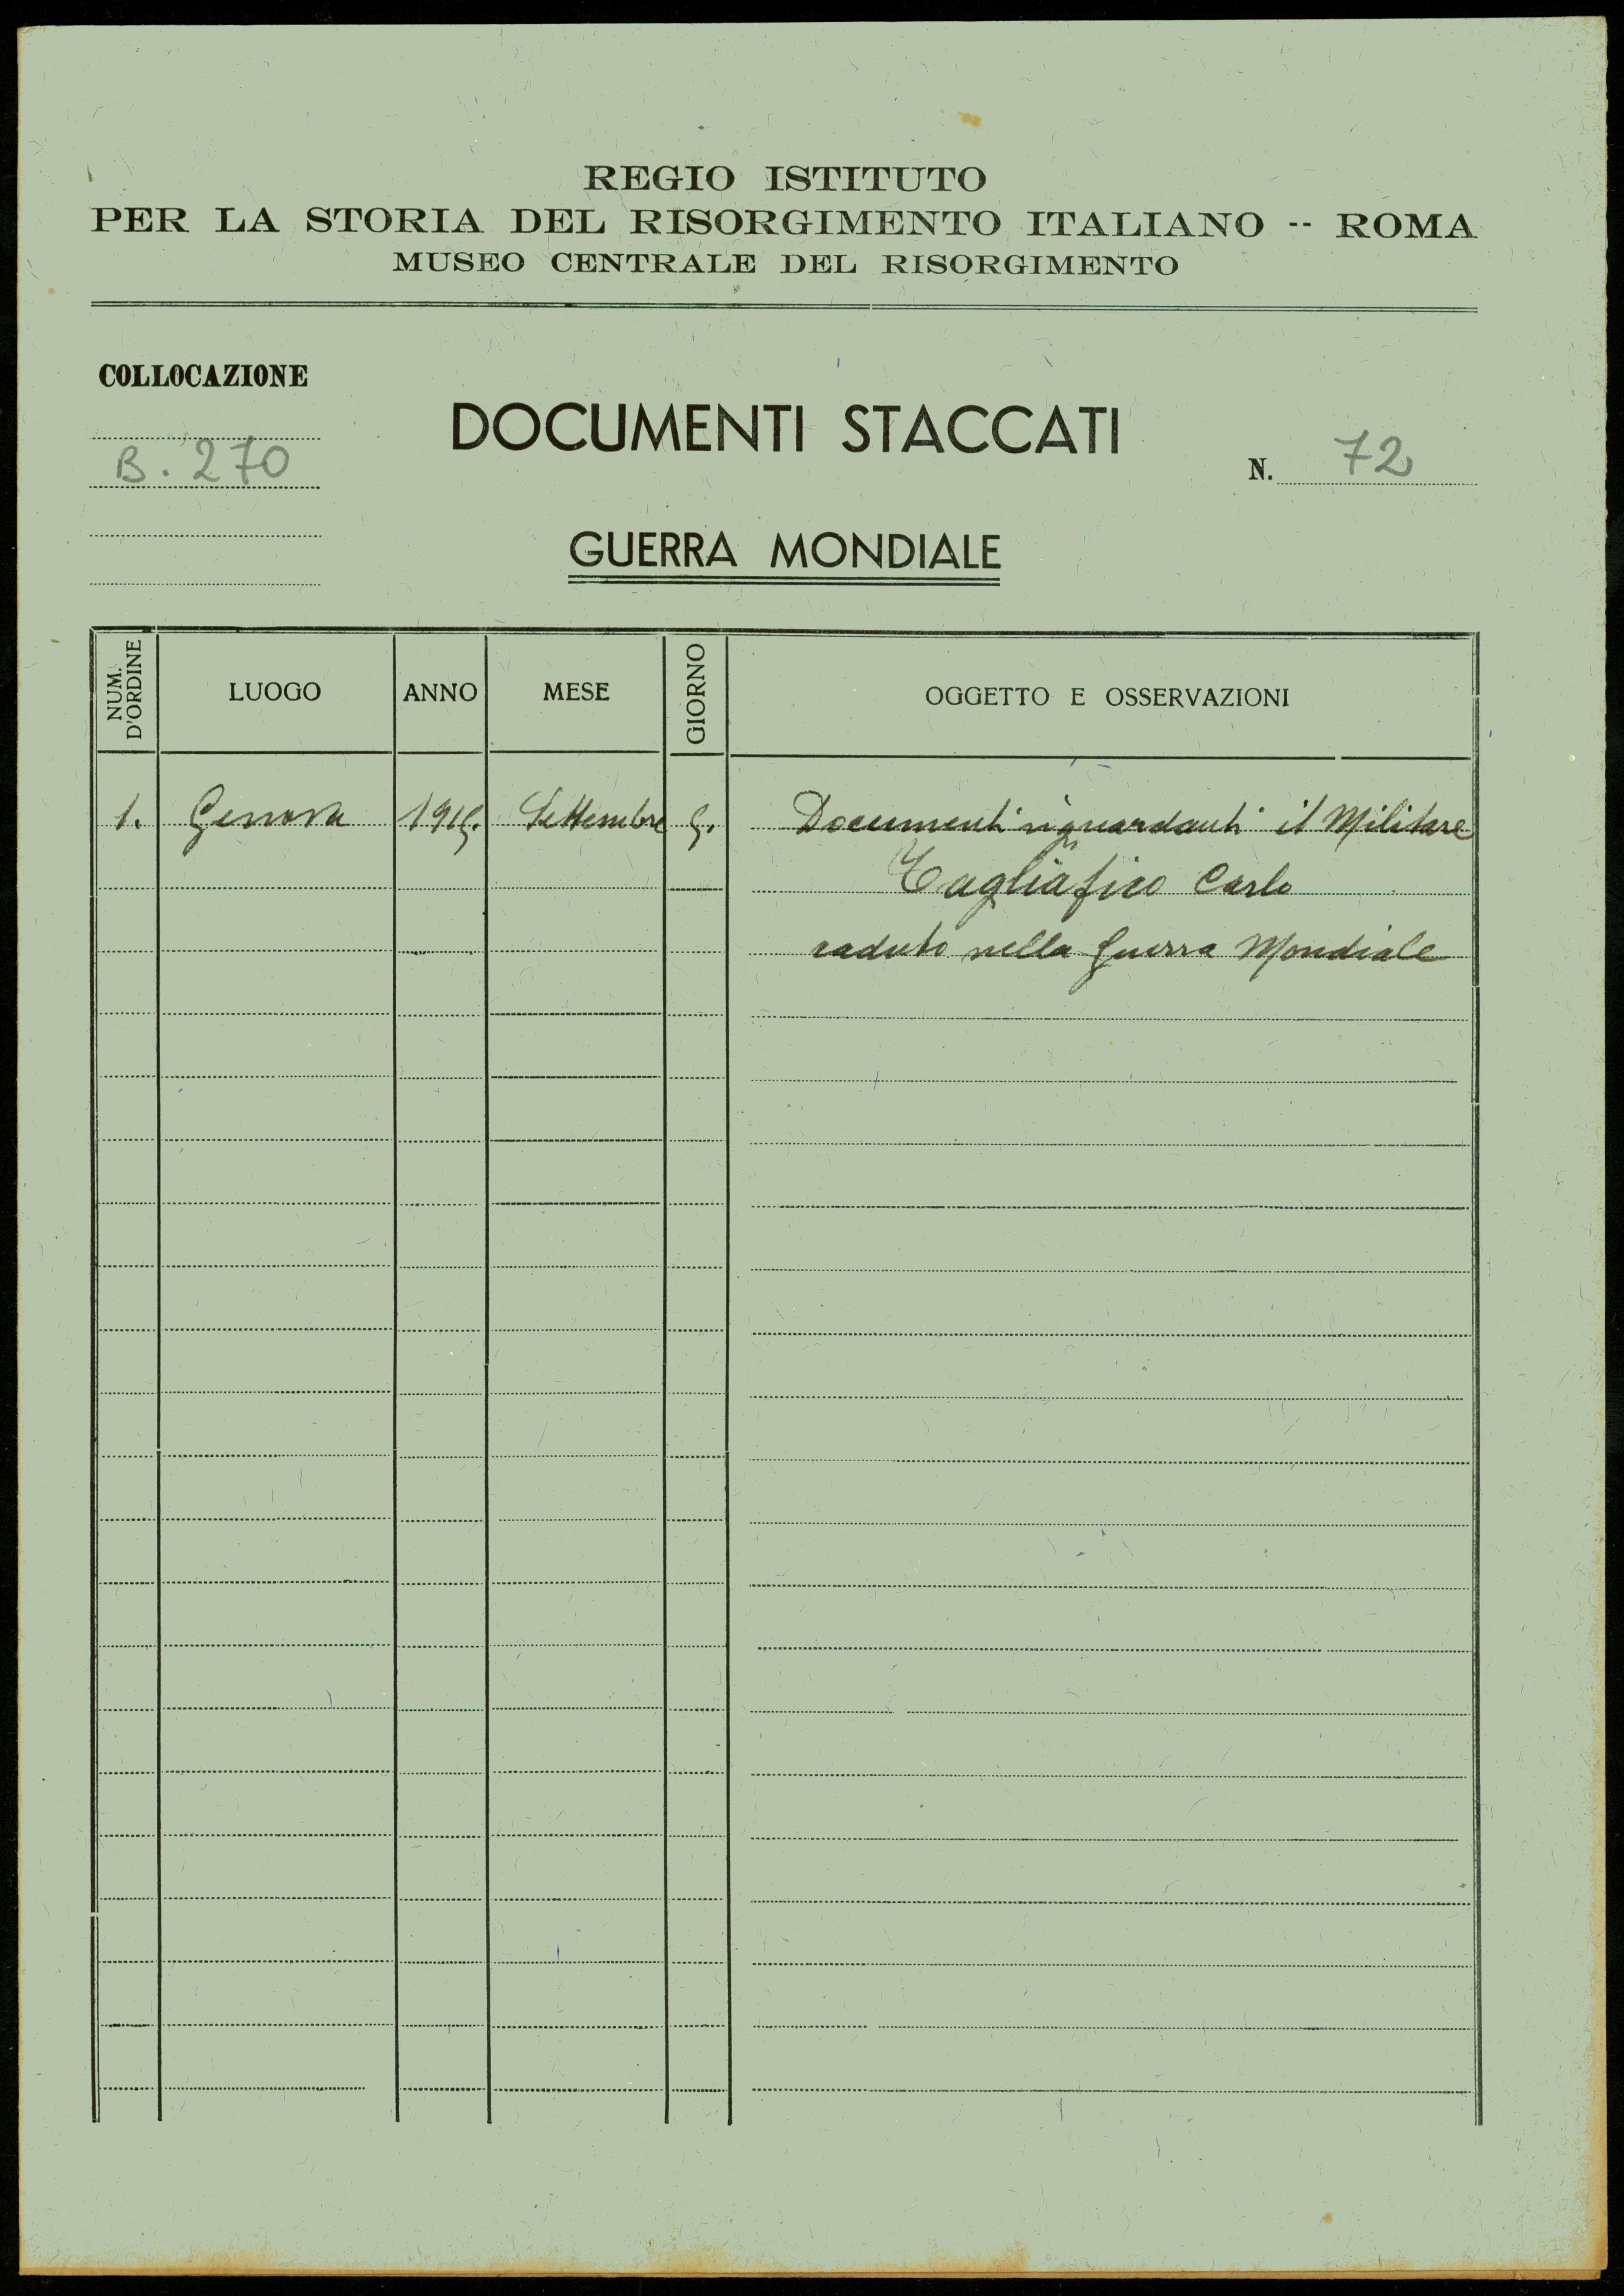 REGIO ISTITUTO
PER LA STORIA DEL RISORGIMENTO ITALIANO -- ROMA
MUSEO CENTRALE DEL RISORGIMENTO
COLLOCAZIONE
B. 270
DOCUMENTI STACCATI
N. 72
GUERRA MONDIALE
NUM. D'ORDINE LUOGO ANNO MESE GIORNO OGGETTO E OSSERVAZIONI
1. Genova Settembre Documenti riguardanti il Militare
Tagliafico Carlo
caduto nella Guerra Mondiale